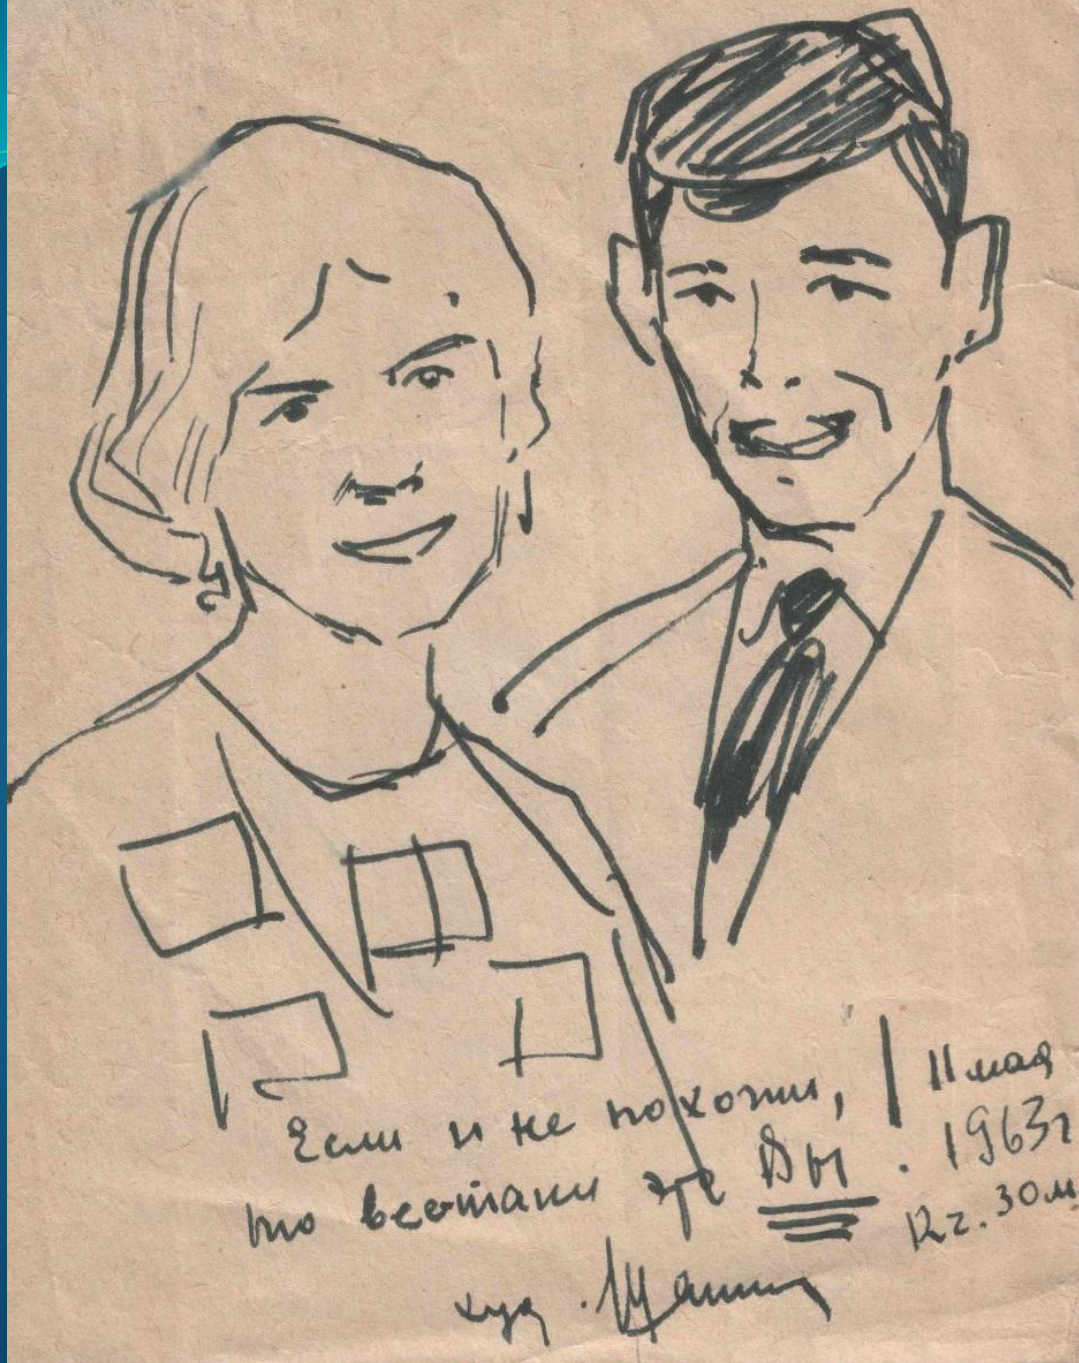 Если и не похожи,
то всетаки это Вы.
худ.
11 мая
1963г
12ч. 30м